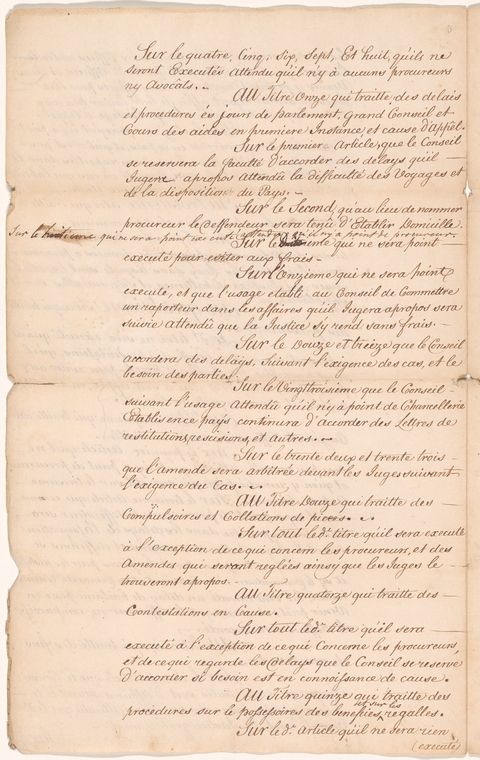 Sur le quatre, Cinq, Six, Sept, Et huit, quils ne
seront Executés attendu quil n'y à aucuns procureurs
ny Avocâts. ~
AU Titre Onze qui traitte des delais
et procedures és jours de parlement, grand Conseil et
Cours des aides en premiere Instance et cause d'appel.
Sur le premier Article, que le Conseil
se reservera la faculté d'accorder des delays qu'il
Jugera apropos attendu la difficulté des Voyages et
de la disposition du Pays. ~
Sur le Second, qu'au lieu de nommer
procureur le deffendeur sera tenu d'Etablir Domicille.
Sur l'huitieme qui ne sera point executé attendu qu'il n'y a point de procureur
Sur le qui ne sera point
executé pour eviter aux frais ~
Sur l'Onzieme qui ne sera point
executé, et que l'usage etabli au Conseil de Commettre
un raporteur dans les affaires quil Jugera apropos sera
suivie attendu que la Justice s'y rend sans frais. ~
Sur le Douze et treize que le Conseil
accordera des delays, Suivant l'exigence des cas, et le
besoin des parties.
Sur le Vingttroisième que le Conseil
suivant l'usage attendu quil n'y à point de Chancellerie
Etablis en ce païs continura d'accorder des Lettres de
restitutions, rescisions, et autres. ~
Sur le trente deux et trente trois
que l'amende sera arbitrée devant les Juges suivant
l'exigence du Cas. ~
AU Titre Douze qui traitte des
Compulsoires et Collations de pieces. ~
Sur tout led. titre quil sera executé
à l'exception de ce qui concern les procureurs, et des
Amendes qui seront reglées ainsy que les Juges le
trouveront apropos.
AU Titre quatorze qui traitte des
Contestations en Cause.
Sur tout led. titre quil sera
executé à l'exception de ce qui Concerne les procureurs,
et de ce qui regarde les Delays que le Conseil se reserve
d'accorder si besoin est en connoissance de cause.
AU Titre quinze qui traitte des
procedures sur le possessoires des benefices, et sur les regalles.
Sur led. article quil ne sera rien
(executé